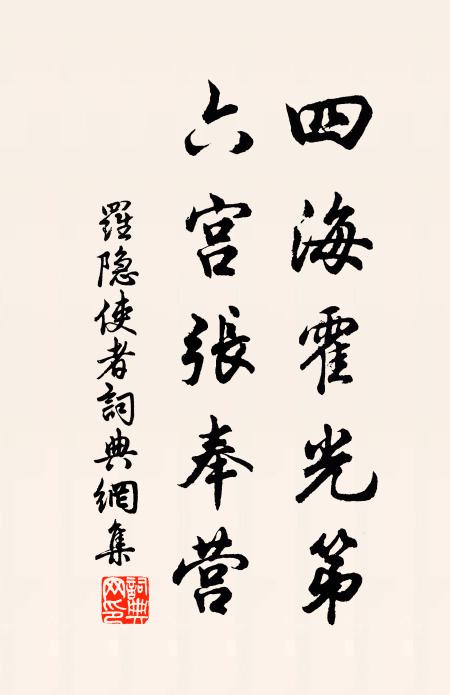 四海霍光第
六宫張奉营
羅隐使者詞典網集
詞典网印